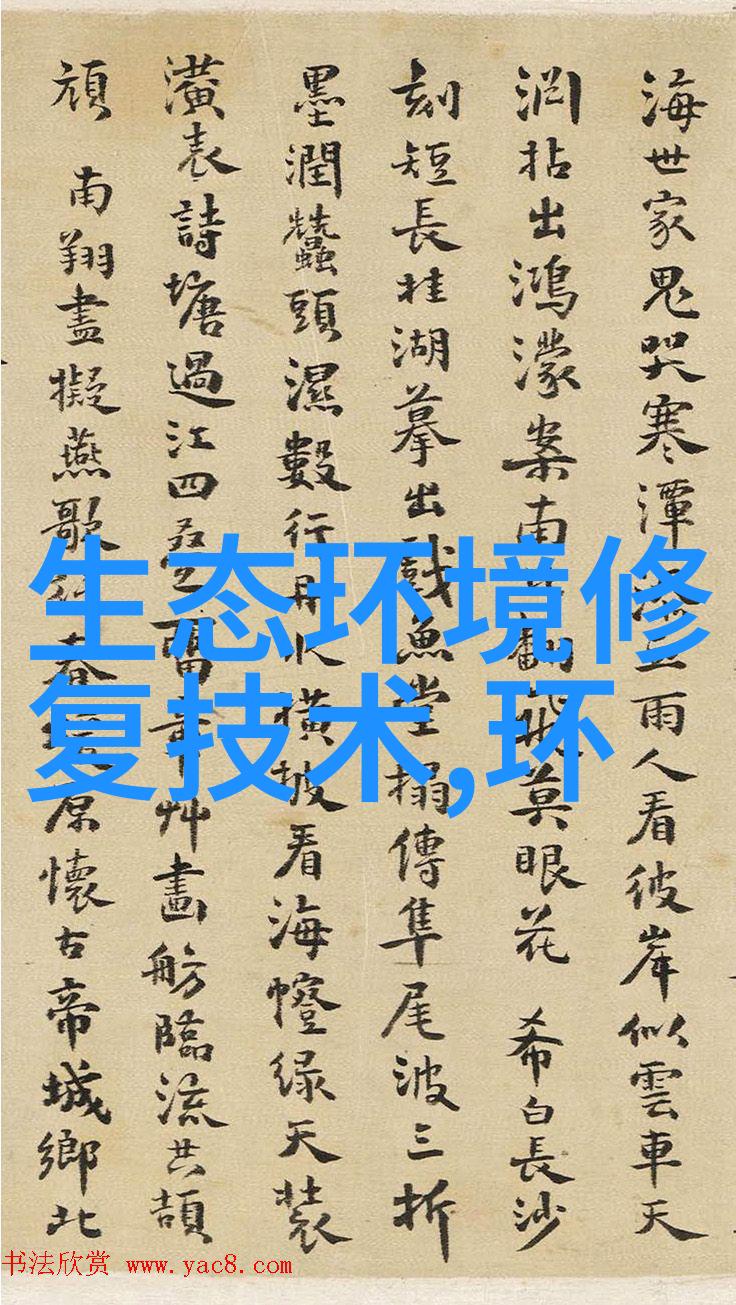 海世家鬼哭寒潭雨人看彼岸似雲車天
洞拈出鴻濛案南翻飛莫眼花 希白長沙
刻短長桂湖摹出戲魚堂搨傳隼尾波三折
墨潤蠶頭濕數行丹水橫披看海幢綠天裝
潢表詩塘過江四疊留章艸畫舫臨流共頡
頏 南翔盡擬燕歌行春原懷古帝城鄉北
生态环境修
复技术,环
书法欣赏 www.yac8.com